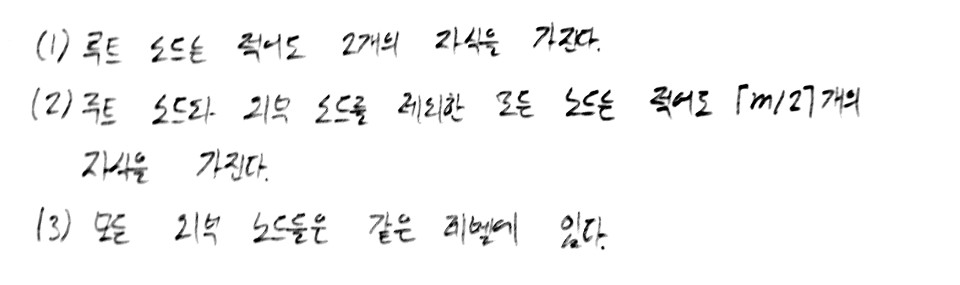 (1) 루트 노드는 적어도 2개의 자식을 가진다.
(2) 루트 노드와 외부 노드를 제외한 모든 노드는 적어도 ⌈m/2⌉개의
자식을 가진다.
(3) 모든 외부 노드들은 같은 레벨에 있다.